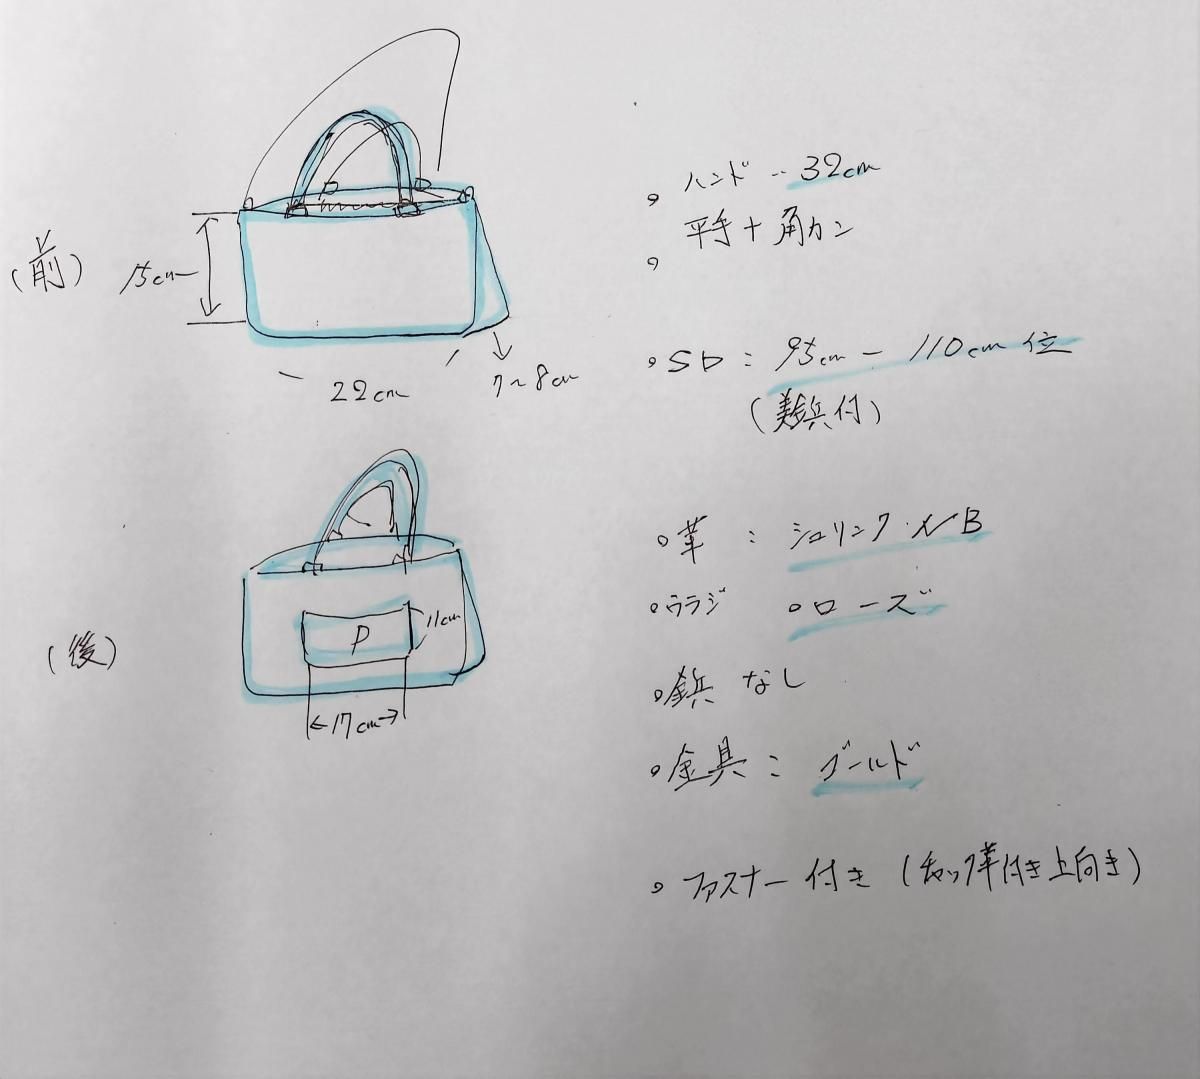 (前)
15cm
22cm
7~8cm
ハンド ‥ 32cm
平手+角カン
SD : 95cm - 110cm 位
(美錠付)
(後)
P
11cm
17cm
革 : シュリンク
ウラジ ローズ
鋲 なし
金具 : ゴールド
ファスナー 付き (チャック革付き上向き)